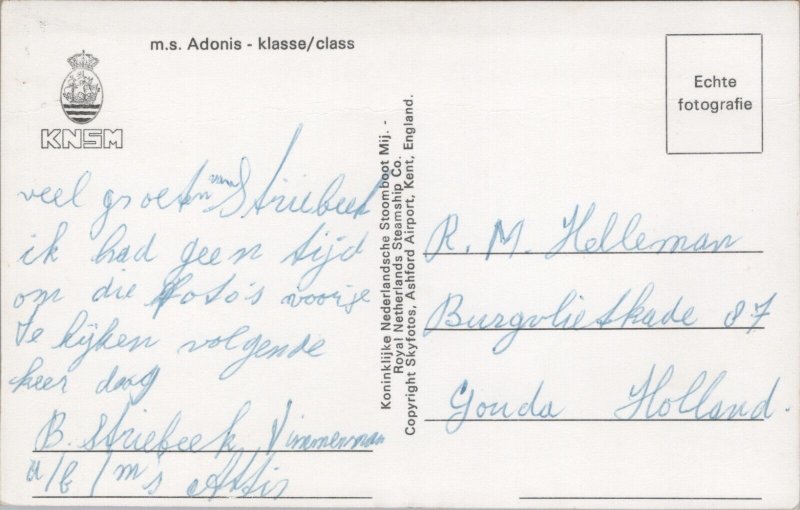 m.s. Adonis - klasse/class
KNSM
veel groeten van Striebeek
ik had geen tijd
om die foto's voorje
te kijken volgende
keer daag
B. Striebeek Timmerman
a/b/m's Attis
Koninklijke Nederlandsche Stoomboot Mij. -
Royal Netherlands Steamship Co.
Copyright Skyfotos, Ashford Airport, Kent, England.
Echte
fotografie
R. M. Helleman
Burgvlietkade 87
Gouda Holland.